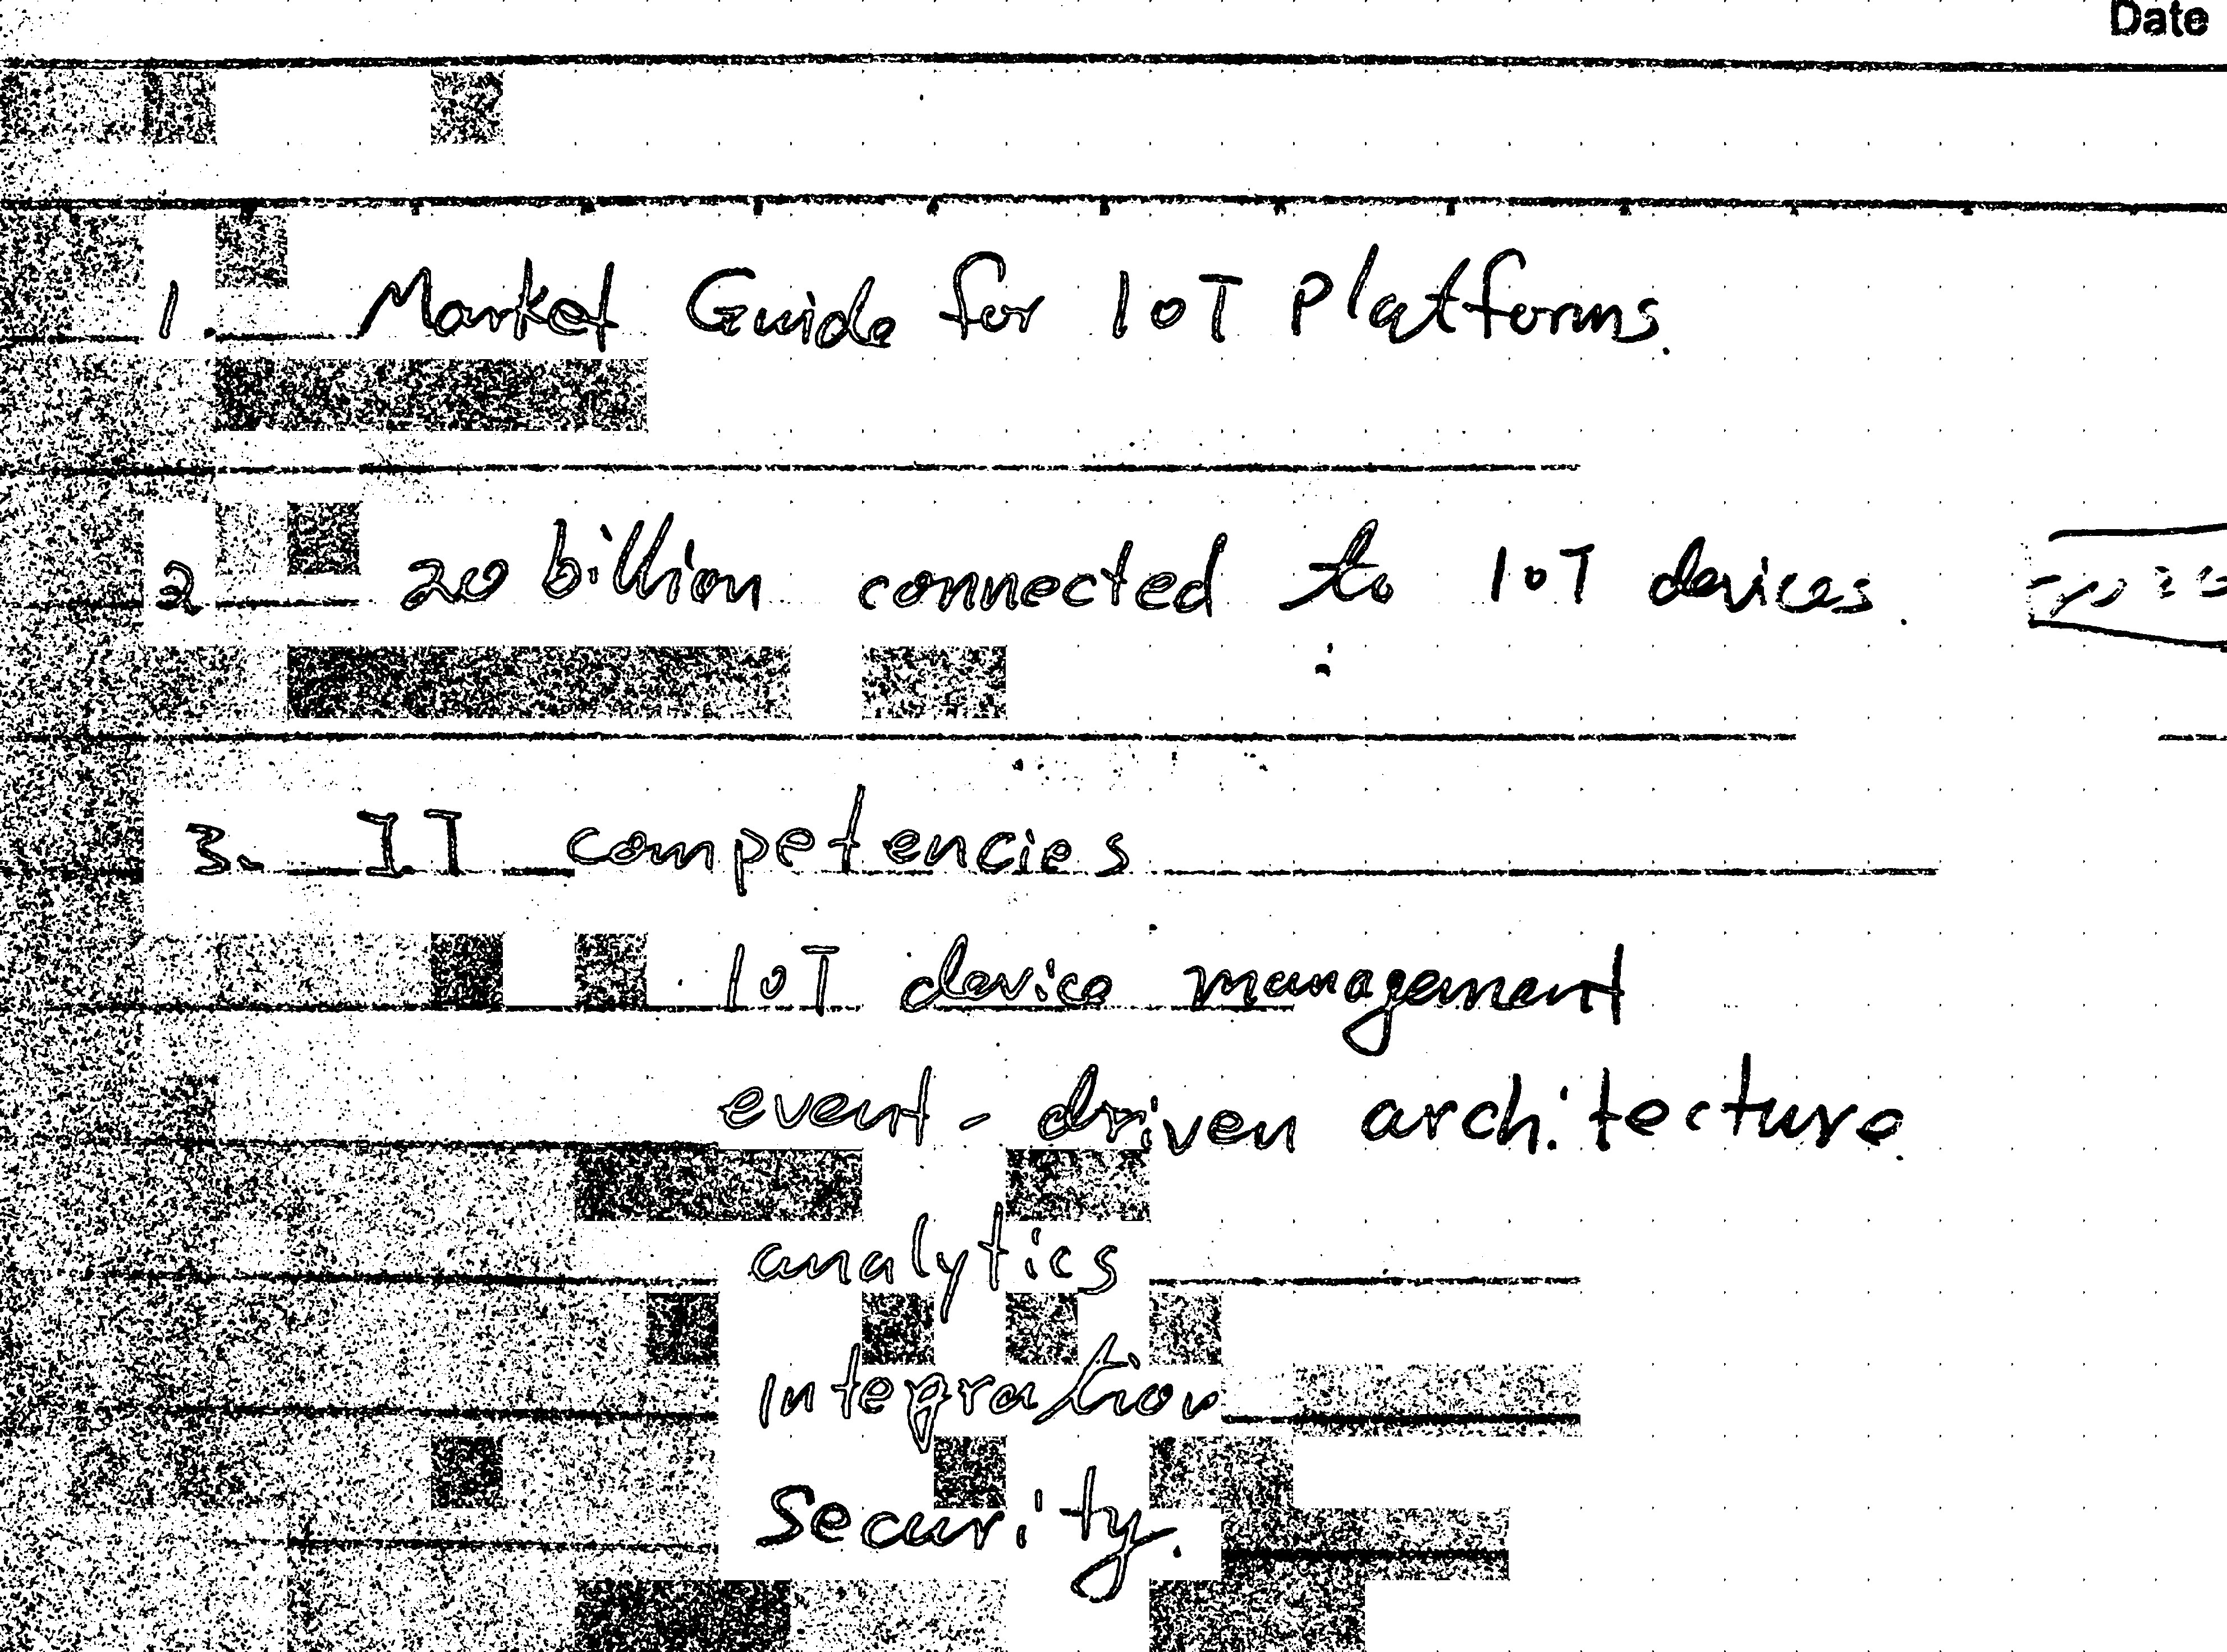 Date
1. Market Guide for IoT Platforms.
2 20 billion connected to IoT devices.
3. I.T competencies
IoT device management
event-driven architecture.
analytics
integration
Security.